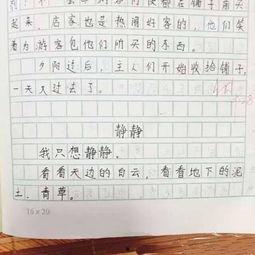 起来，店家也是热闹好客的，他们笑
着为游客包他们所买的东西。
夕阳过后，主人们开始收拾铺子，
一天又过去了。
静静
我只想静静。
看看天边的白云，看看地下的泥
土、青草。